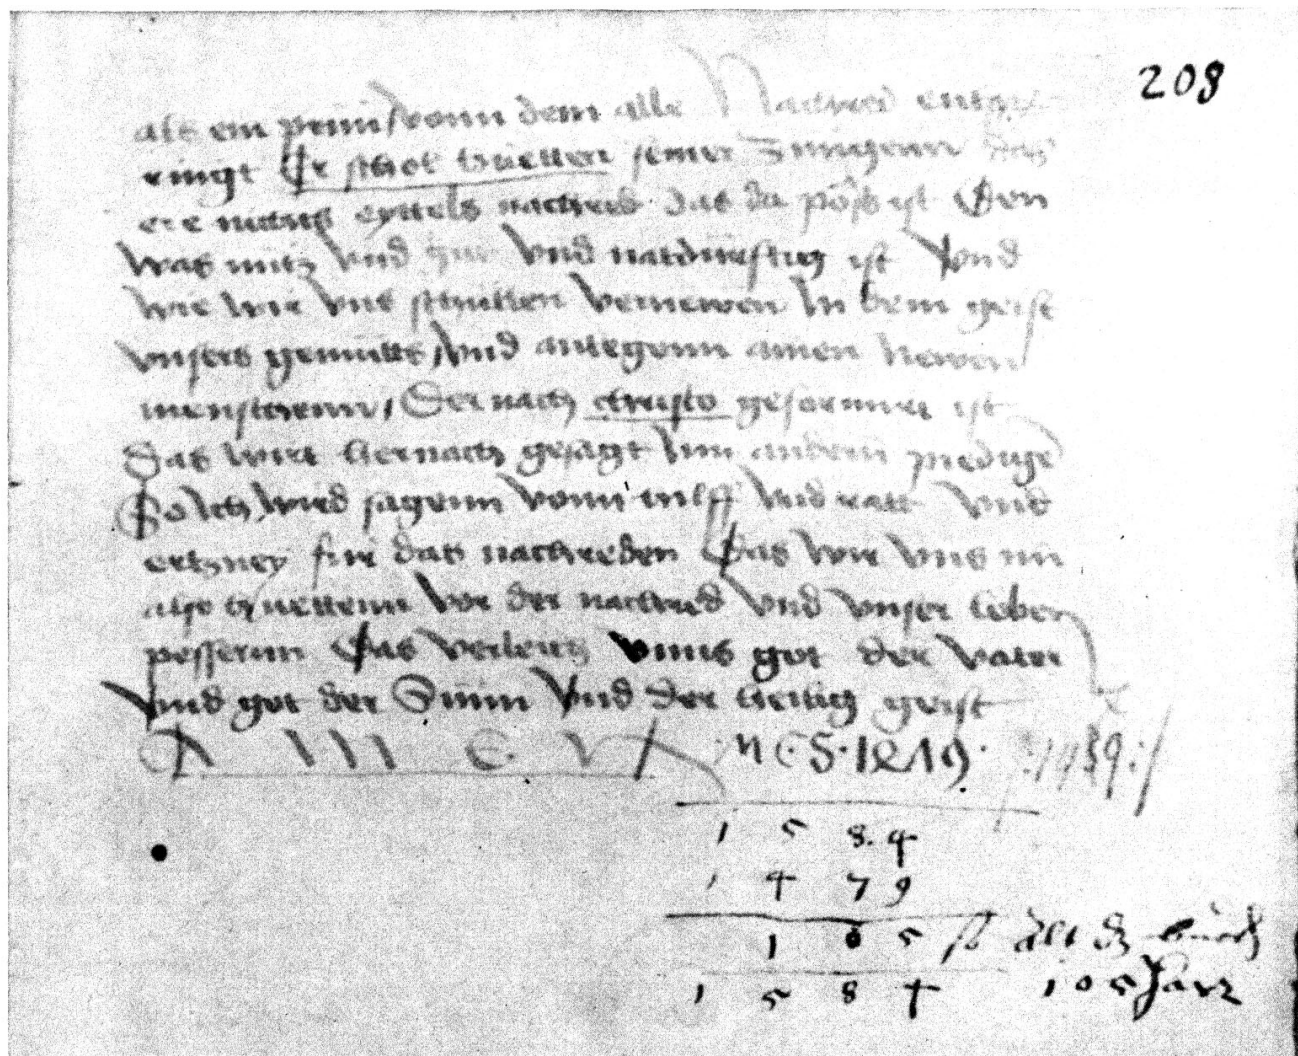 208
als ein prun / vonn dem alle Nachred entsp
ringt Er schol huetten seiner Zungenn das
ere nichts eyttels nachred das da pöß ist Den
was nütz vnd gut vnd notdürftig ist vnd
wie wir vns schullen vernewen In dem geist
vnsers gemütts / vnd anlegenn ainen newen
menschenn / Der nach christo geformirt ist
Das wirt hernach gesagt Im andern prediger
So ich wird sagenn vonn hilff vnd ratt vnd
ertzney für das nachreden Das wir vns nu
also hüettenn vor der nachred vnd vnser leben
pessernn Das verleich vnns got der vater
vnd got der Sunn vnd der heilig geist
A M E N
1 5 8 4
1 4 7 9
1 0 5 so alt dz buech
1 5 8 4 105 Jarr